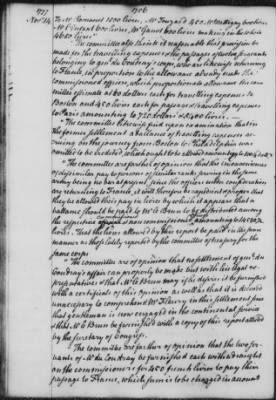 1777
1706
Nov. 14
To Mr Romanet 1000 livres, Mr 400. Mr
Mr 600 livres, Mr Garant 600 livres making in the whole
livres."
"The committee also think it reasonable that provision be
made for the travelling expences & the passages of such officers
belonging to genl du Coudray's corps, who are likewise returning
to France, in proportion to the allowance already made the
commissioned officers, which proportion & allowance the com
mittee estimate at 60 dollars each for travelling expences to
Boston and 400 livres each for passages & travelling expences
to Paris amounting to 720 dollars & 4800 livres.
"The committee likewise find upon examination that in
the former settlement a ballance of travelling expences ac
cruing on the journey from Boston to Philadelphia was
omitted to be credited, which ought to be allowed amounting to
"The committee are further of opinion that the circumstances
of dissimilar pay to persons of similar ranks, serving in the same
army, being no bar of proof, since the officers under consideration
are returning to France, it will therefore be equitable & proper that
they be allowed their pay in livres by which it appears that a
ballance should be paid to Mr le Brun to be distributed among
the respective officers & non commissioned, amounting to
livres. That the livres allowed by this report be paid in the same
manner as those lately reported by the committee of treasury for the
same corps
"The committee are of opinion that no settlement of genl du
Coudray's affair can properly be made but with his legal re
presentatives & that Mr le Brun may if he desires it be furnished
with a certificate of this opinion as well as that it is deemed
unnecessary to comprehend Mr Fleury in this settlement since
that gentleman is now engaged in the continental service
& that Mr le Brun be furnished with a copy of this report attested
by the secretary of Congress.
"The committee are further of opinion that the two ser-
vants of Mr du Coudray be furnished each with a draught
on the commissioners for 400 french livres to pay their
passage to France, which sum is to be charged in account